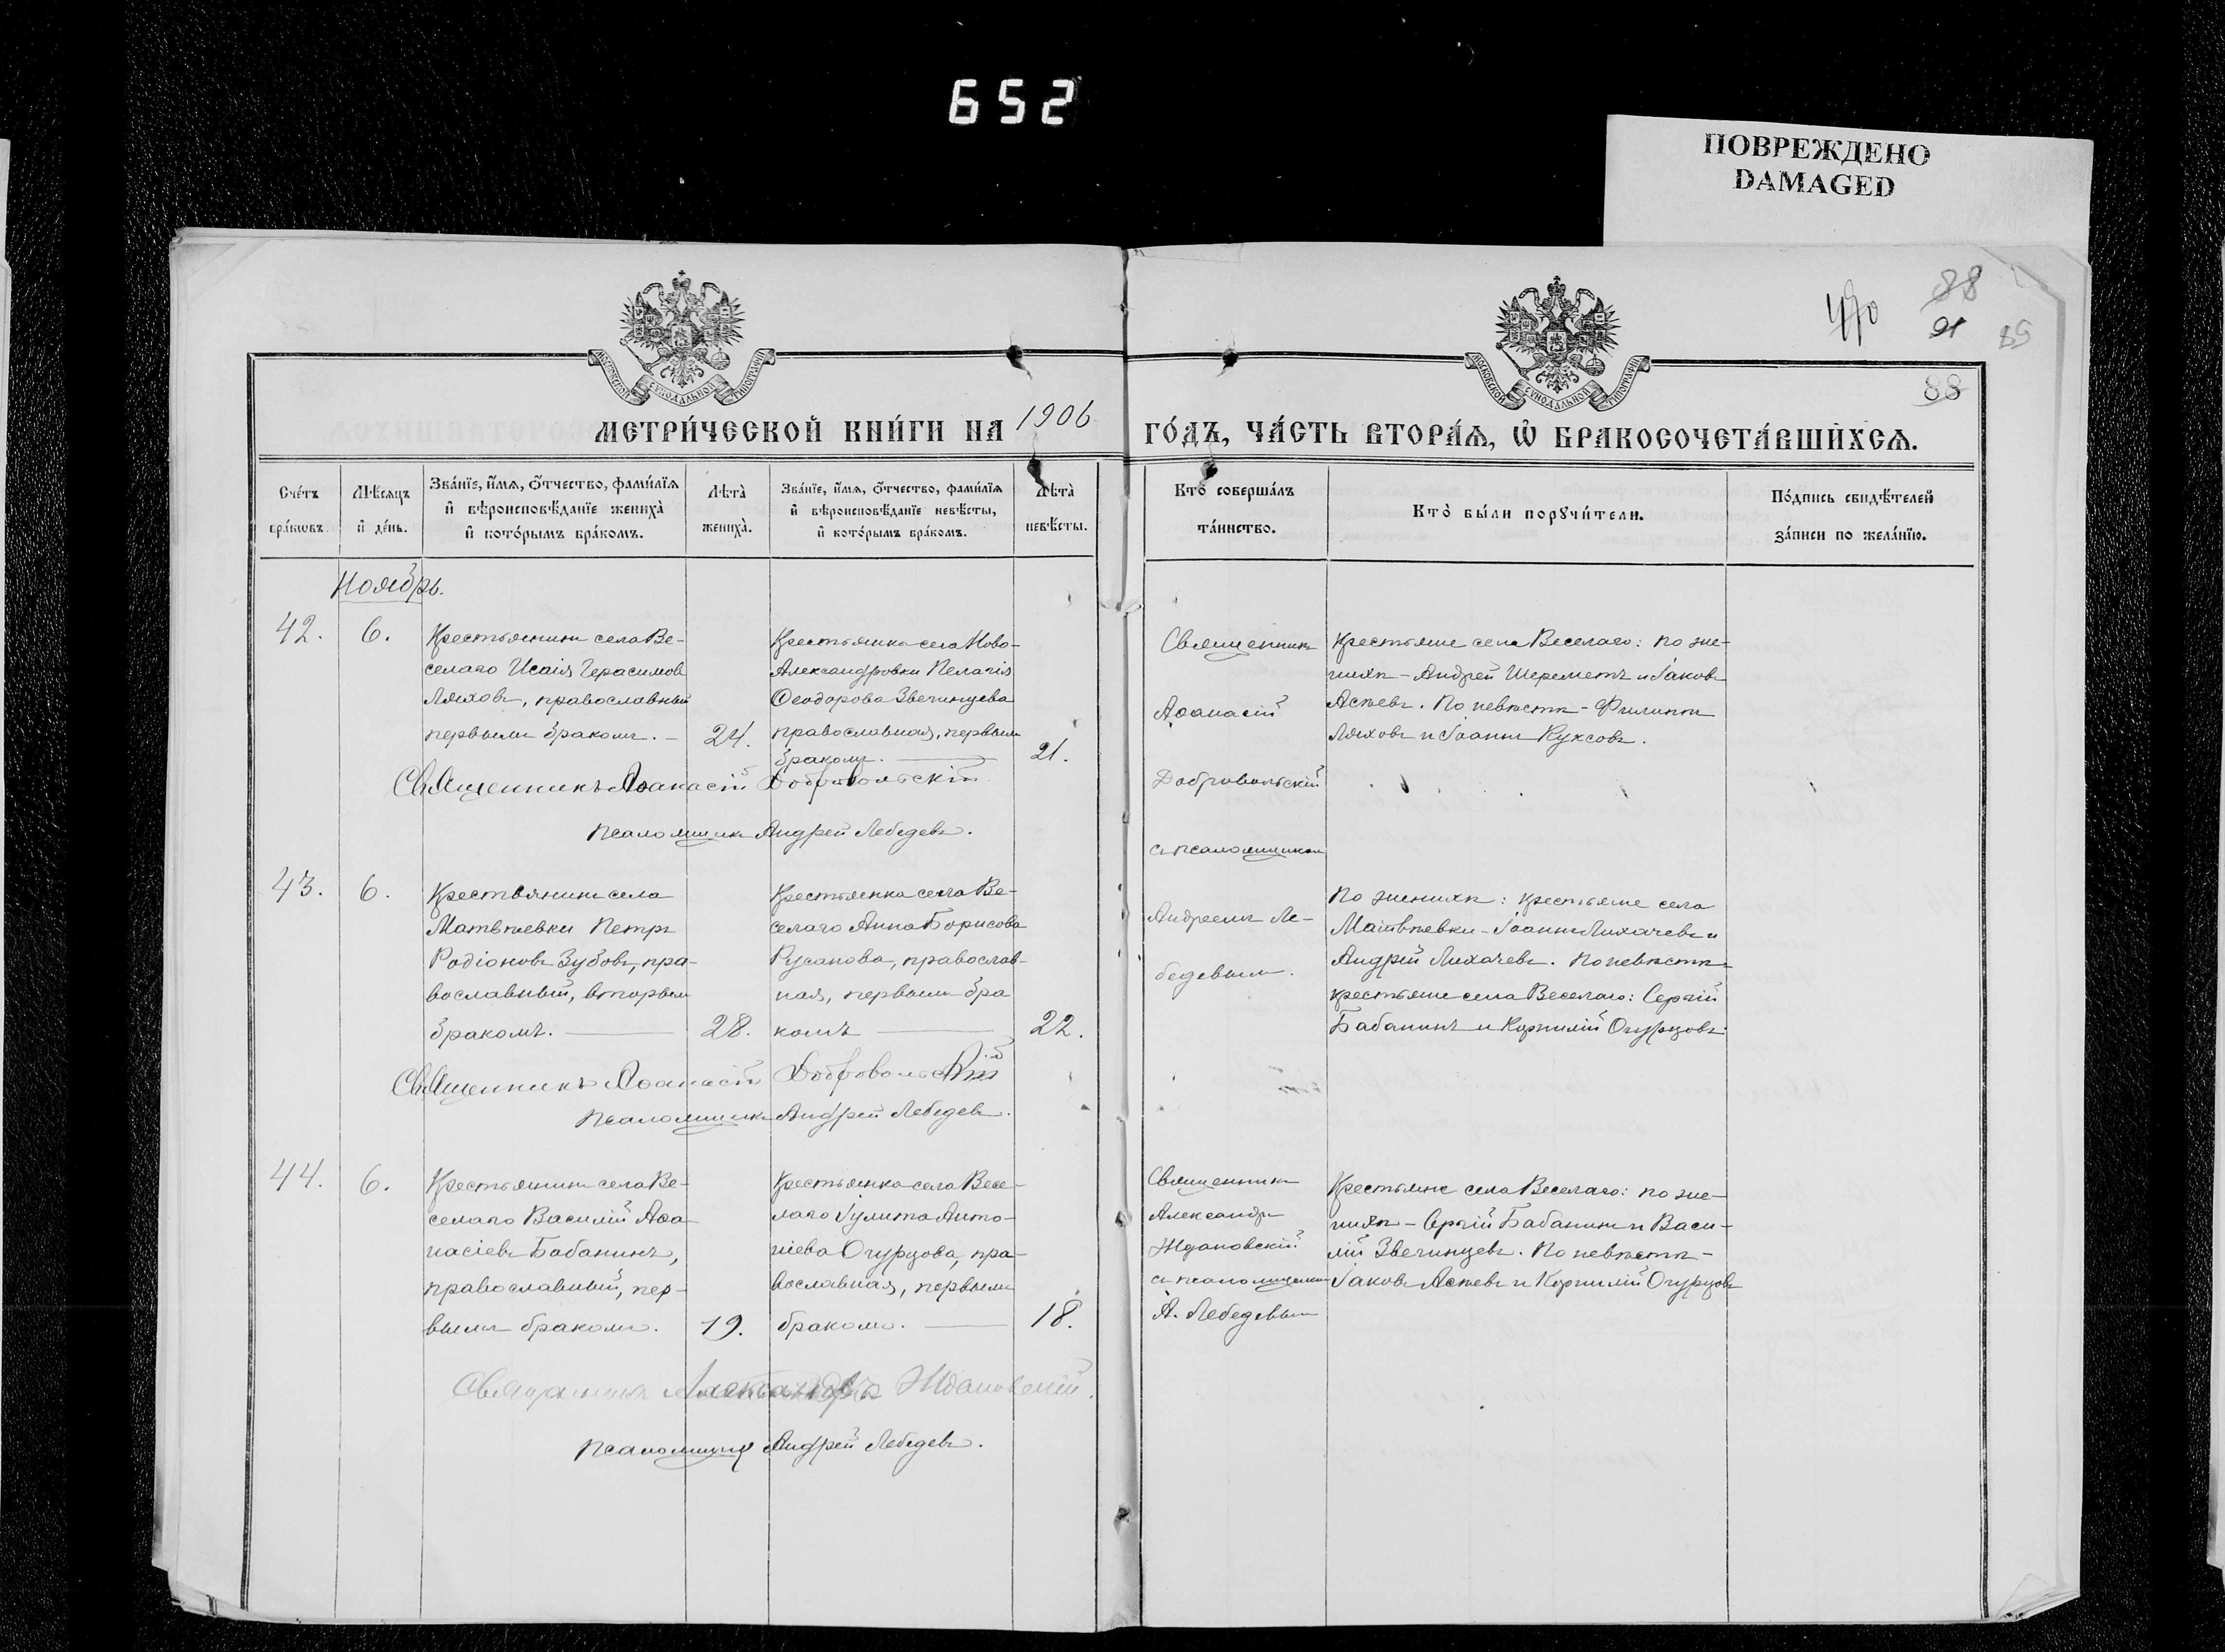 652
ПОВРЕЖДЕНО
DAMAGED
88
91 89
88
МОСКОВСКОЙ СѴНОДАЛЬНОЙ ТИПОГРАФІИ
МОСКОВСКОЙ СѴНОДАЛЬНОЙ ТИПОГРАФІИ
МЕТРИ́ЧЕСКОЙ КНИ́ГИ НА 1906 ГО́ДЪ, ЧА́СТЬ ВТОРА́Ѧ, Ѽ БРАКОСОЧЕТА́ВШИХСѦ.
Сче́тъ
бра́ковъ.
Мѣ́сяцъ
и҆ де́нь.
Зва́нїе, и҆́мѧ, ѻ҆́тчество, фами́лїѧ
и҆ вѣроисповѣ́данїе жениха̀
и҆ кото́рымъ бра́комъ.
Лѣта̀
жениха̀.
Зва́нїе, и҆́мѧ, ѻ҆́тчество, фами́лїѧ
и҆ вѣроисповѣ́данїе невѣ́сты,
и҆ кото́рымъ бра́комъ.
Лѣта̀
невѣ́сты.
Кто̀ соверша́лъ
та́инство.
Кто̀ бы́ли порꙋчи́тели.
По́дпись свидѣ́телей
за́писи по жела́нїю.
Ноябрь.
42.
6.
Крестьянинъ села Ве-
селаго Исаія Герасимовъ
Ляховъ, православный
первымъ бракомъ. –
24.
Крестьянка села Ново-
Александровки Пелагія
Ѳеодорова Звегинцева
православная, первымъ
бракомъ.
21.
Священникъ
Аѳанасій
Добровольскій
съ псаломщикомъ
Андреемъ Ле-
бедевымъ.
Крестьяне села Веселаго: по же-
нихѣ – Андрей Шереметъ и Іаковъ
Асѣевъ. По невѣстѣ – Филиппъ
Ляховъ и Іоаннъ Куксовъ.
Священникъ Аѳанасій Добровольскій
Псаломщикъ Андрей Лебедевъ.
43.
6.
Крестьянинъ села
Матвѣевки Петръ
Родіоновъ Зубовъ, пра-
вославный, вторымъ
бракомъ.
28.
Крестьянка села Ве-
селаго Анна Борисова
Русанова, православ-
ная, первымъ бра
комъ
22.
По женихѣ: крестьяне села
Матвѣевки – Іоаннъ Лихачевъ и
Андрей Лихачевъ. По невѣстѣ
крестьяне села Веселаго: Сергій
Бабанинъ и Корнилій Огурцовъ.
Священникъ Аѳанасій Добровольскій
Псаломщикъ Андрей Лебедевъ.
44.
6.
Крестьянинъ села Ве-
селаго Василій Аѳа-
насіевъ Бабанинъ,
православный, пер-
вымъ бракомъ.
19.
Крестьянка села Весе-
лаго Іулита Анто-
ніева Огурцова, пра-
вославная, первымъ
бракомъ.
18.
Священникъ
Александръ
Ждановскій
съ псаломщикомъ
А. Лебедевымъ
Крестьяне села Веселаго: по же-
нихѣ – Сергій Бабанинъ и Васи-
лій Звегинцевъ. По невѣстѣ –
Іаковъ Асѣевъ и Корнилій Огурцовъ
Священникъ Александръ Ждановскій.
Псаломщикъ Андрей Лебедевъ.